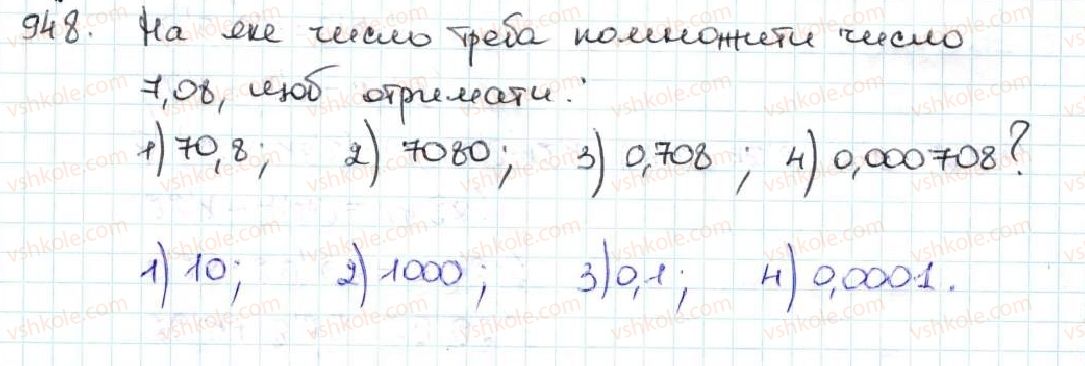 948. На яке число треба помножити число
7,08, щоб отримати:
1) 70,8; 2) 7080; 3) 0,708; 4) 0,000708?
1) 10; 2) 1000; 3) 0,1; 4) 0,0001.